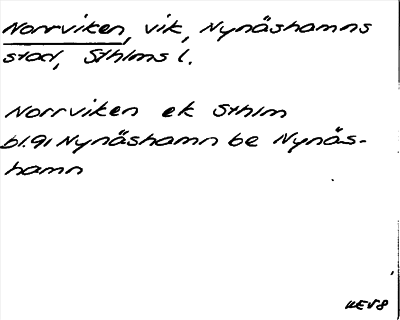 Norrviken, vik, Nynäshamns
stad, Sthlms l.
Norrviken ek Sthlm
bl.91 Nynäshamn be Nynäs-
hamn